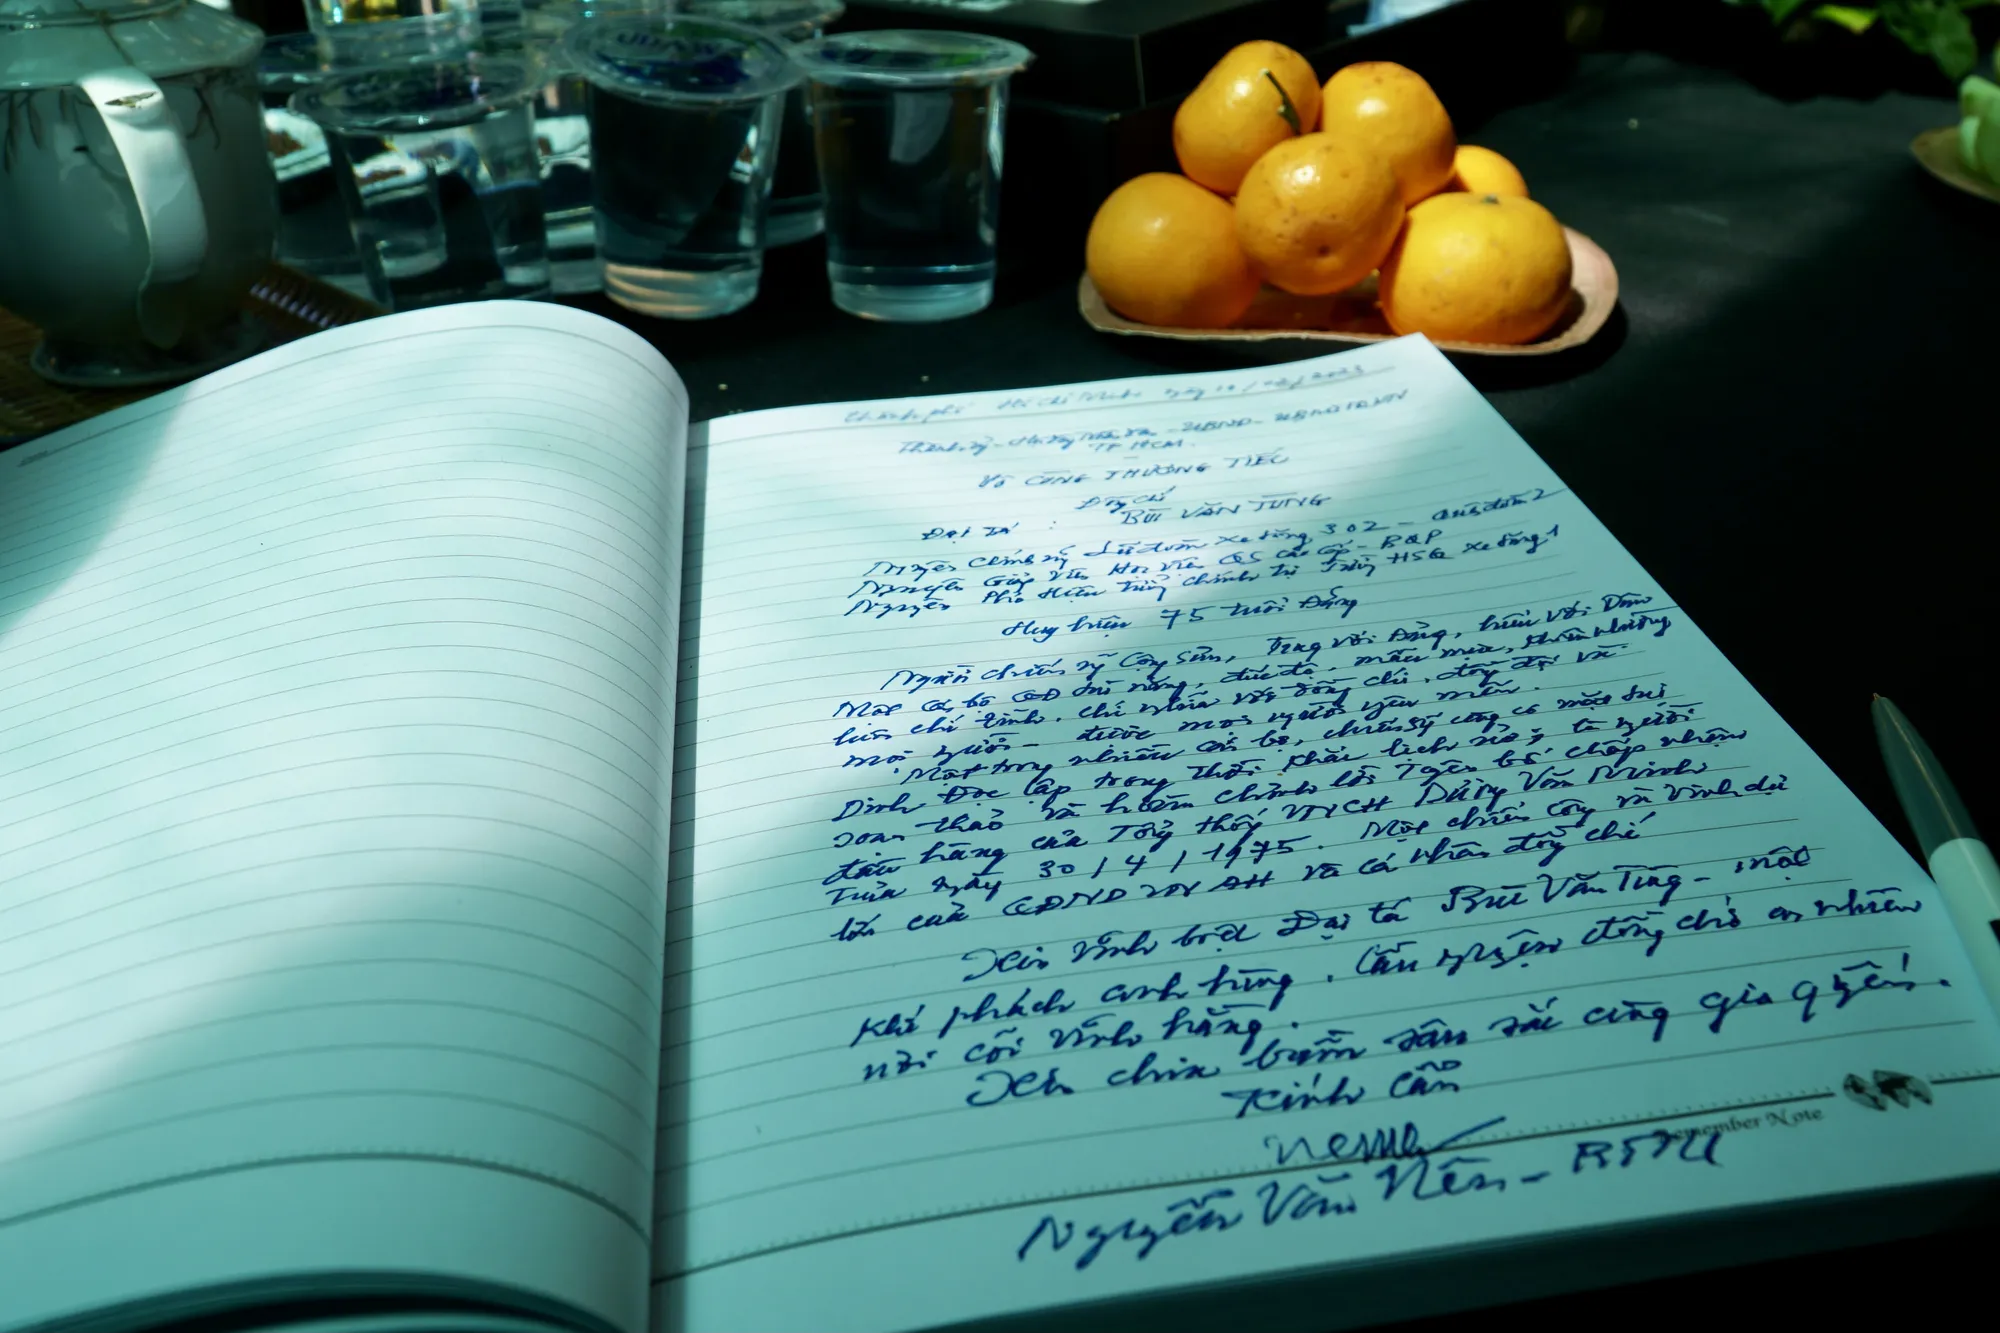 Thành phố Hồ Chí Minh ngày 10/02/2023
Thành ủy - Hội đồng Nhân dân - UBND - UBMTTQVN
TP HCM.
Vô CÙNG THƯƠNG TIẾC
Đồng chí
Đại Tá : BÙI VĂN TÙNG
Nguyên Chính ủy Lữ đoàn Xe tăng 302 - Quân đoàn 2
Nguyên Giáo Viên Học Viện QS Cao Cấp - BQP
Nguyên Phó Hiệu Trưởng chính trị Trường HSQ Xe tăng 1
Huy hiệu 75 tuổi Đảng
Người chiến sỹ Cộng Sản, Trung Với Đảng, hiếu Với Dân
Một Cán bộ QĐ tài năng, đức độ, mẫu mực, khiêm nhường
luôn chí tình, chí nghĩa với đồng chí, đồng đội và
mọi người - được mọi người yêu mến.
Một trong nhiều cán bộ, chiến sỹ cùng có mặt tại
Dinh Độc lập trong Thời khắc lịch sử, là người
soạn thảo và hoàn chỉnh lời Tuyên bố chấp nhận
đầu hàng của Tổng thống VNCH Dương Văn Minh
Trưa ngày 30/4/1975. Một chiến công và Vinh dự
lớn của QĐND VN AH và cá nhân đồng chí
Xin Vĩnh biệt Đại tá Bùi Văn Tùng - một
khí phách anh hùng. Cầu nguyện đồng chí an nhiên
nơi cõi vĩnh hằng.
Xin chia buồn sâu sắc cùng gia quyến.
Kính cẩn
Nguyễn Văn Nên -
Remember Note